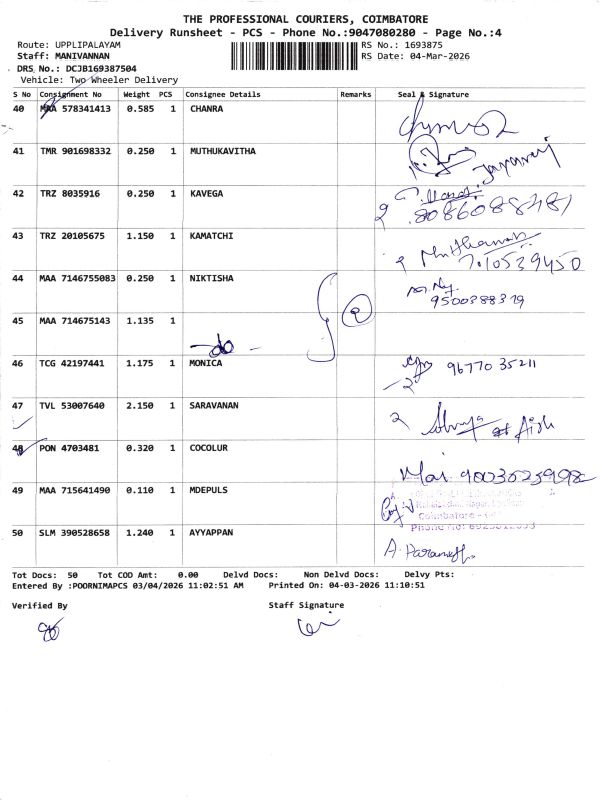 THE PROFESSIONAL COURIERS, COIMBATORE
Delivery Runsheet - PCS - Phone No.:9047080280 - Page No.:4
Route: UPPLIPALAYAM RS No.: 1693875
Staff: MANIVANNAN RS Date: 04-Mar-2026
DRS No.: DCJB169387504
Vehicle: Two Wheeler Delivery
S No Consignment No Weight PCS Consignee Details Remarks Seal & Signature
40 MAA 578341413 0.585 1 CHANRA
41 TMR 901698332 0.250 1 MUTHUKAVITHA
Jayaraj
42 TRZ 8035916 0.250 1 KAVEGA
8086088481
43 TRZ 20105675 1.150 1 KAMATCHI
7010539450
44 MAA 7146755083 0.250 1 NIKTISHA
9500388319
45 MAA 714675143 1.135 1
-do-
46 TCG 42197441 1.175 1 MONICA
9677035211
47 TVL 53007640 2.150 1 SARAVANAN
48 PON 4703481 0.320 1 COCOLUR
49 MAA 715641490 0.110 1 MDEPULS
Coimbatore
50 SLM 390528658 1.240 1 AYYAPPAN
Tot Docs: 50 Tot COD Amt: 0.00 Delvd Docs: Non Delvd Docs: Delvy Pts:
Entered By :POORNIMAPCS 03/04/2026 11:02:51 AM Printed On: 04-03-2026 11:10:51
Verified By Staff Signature